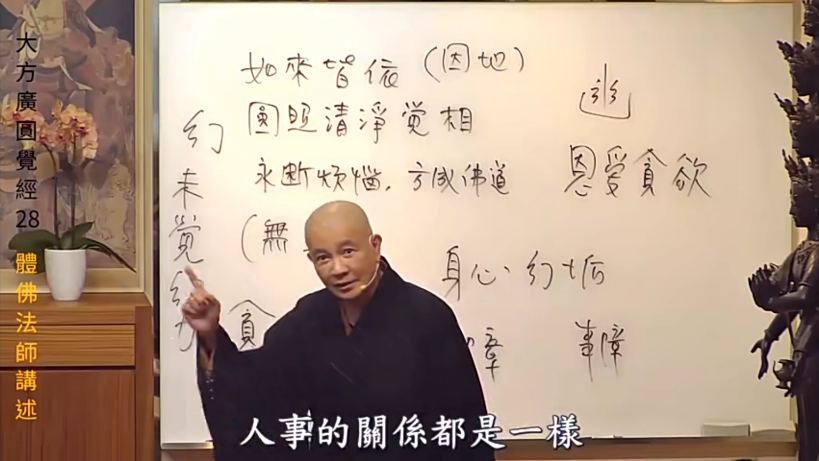 大方廣圓覺經28 體佛法師講述
如來皆依(因地)
圓照清淨覚相
永斷煩惱,方成佛道
(無
貪
幻未覚幻
恩受貪欲
身心幻垢
事障
人事的關係都是一樣